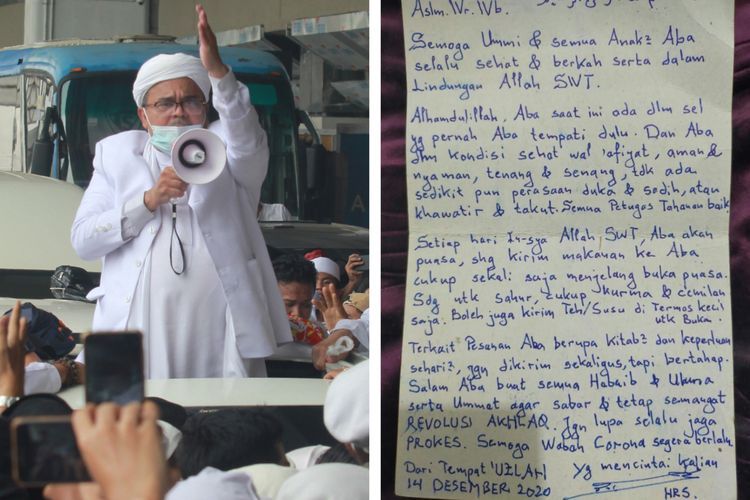 Aslm. Wr. Wb.
Semoga Ummi & semua Anak² Aba
selalu sehat & berkah serta dalam
Lindungan Allah SWT.
Alhamdulillah, Aba saat ini ada dlm sel
yg pernah Aba tempati dulu. Dan Aba
dlm kondisi sehat wal 'afiyat, aman &
nyaman, tenang & senang, tdk ada
sedikit pun perasaan duka & sedih, atau
khawatir & takut. Semua Petugas Tahanan baik
Setiap hari In-sya Allah SWT, Aba akan
puasa, shg kirim makanan ke Aba
cukup sekali saja menjelang buka puasa.
Sdg utk sahur, cukup kurma & cemilan
saja. Boleh juga kirim Teh/Susu di Termos kecil
utk Buka.
Terkait Pesanan Aba berupa kitab² dan keperluan
sehari², jgn dikirim sekaligus, tapi bertahap.
Salam Aba buat semua Habaib & Ulama
serta Ummat agar sabar & tetap semangat
REVOLUSI AKHLAQ. Jgn lupa selalu jaga
PROKES. Semoga Wabah Corona segera berlalu.
Dari Tempat 'UZLAH
Yg mencintai kalian
14 DESEMBER 2020
HRS.